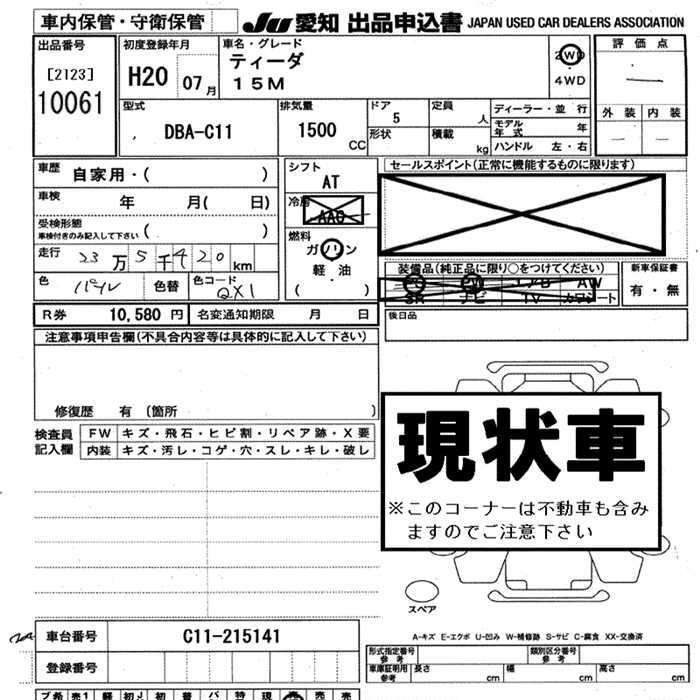 車内保管・守衛保管
JU 愛知 出品申込書 JAPAN USED CAR DEALERS ASSOCIATION
出品番号
[2123]
10061
初度登録年月
H20 07月
車名・グレード
ティーダ
15M
2WD
4WD
評価点
外装 内装
型式
DBA-C11
排気量
1500 CC
ドア
5
形状
定員 人
積載 kg
ディーラー・並行
モデル年式 年
ハンドル 左・右
車歴 自家用・( )
車検 年 月( 日)
受検形態
車検付きのみ記入して下さい ( )
走行 23万5千420km
色 パール 色替 色コード QX1
シフト
AT
冷房
AAC
燃料
ガソリン
軽・油
( )
セールスポイント(正常に機能するものに限ります)
装備品(純正品に限り○をつけてください)
エアB AW
SR ナビ TV カワシート
新車保証書
有・無
R券 10,580円 名変通知期限 月 日
後日品
注意事項申告欄(不具合内容等は具体的に記入して下さい)
修復歴 有 (箇所 )
検査員記入欄
FW キズ・飛石・ヒビ割・リペア跡・X要
内装 キズ・汚レ・コゲ・穴・スレ・キレ・破レ
現状車
※このコーナーは不動車も含み
ますのでご注意下さい
スペア
A-キズ E-エクボ U-凹み W-補修跡 S-サビ C-腐食 XX-交換済
車台番号 C11-215141
登録番号
形式指定番号 参考 類別区分番号 参考
車庫証明用 参考 長さ cm 幅 cm 高さ cm